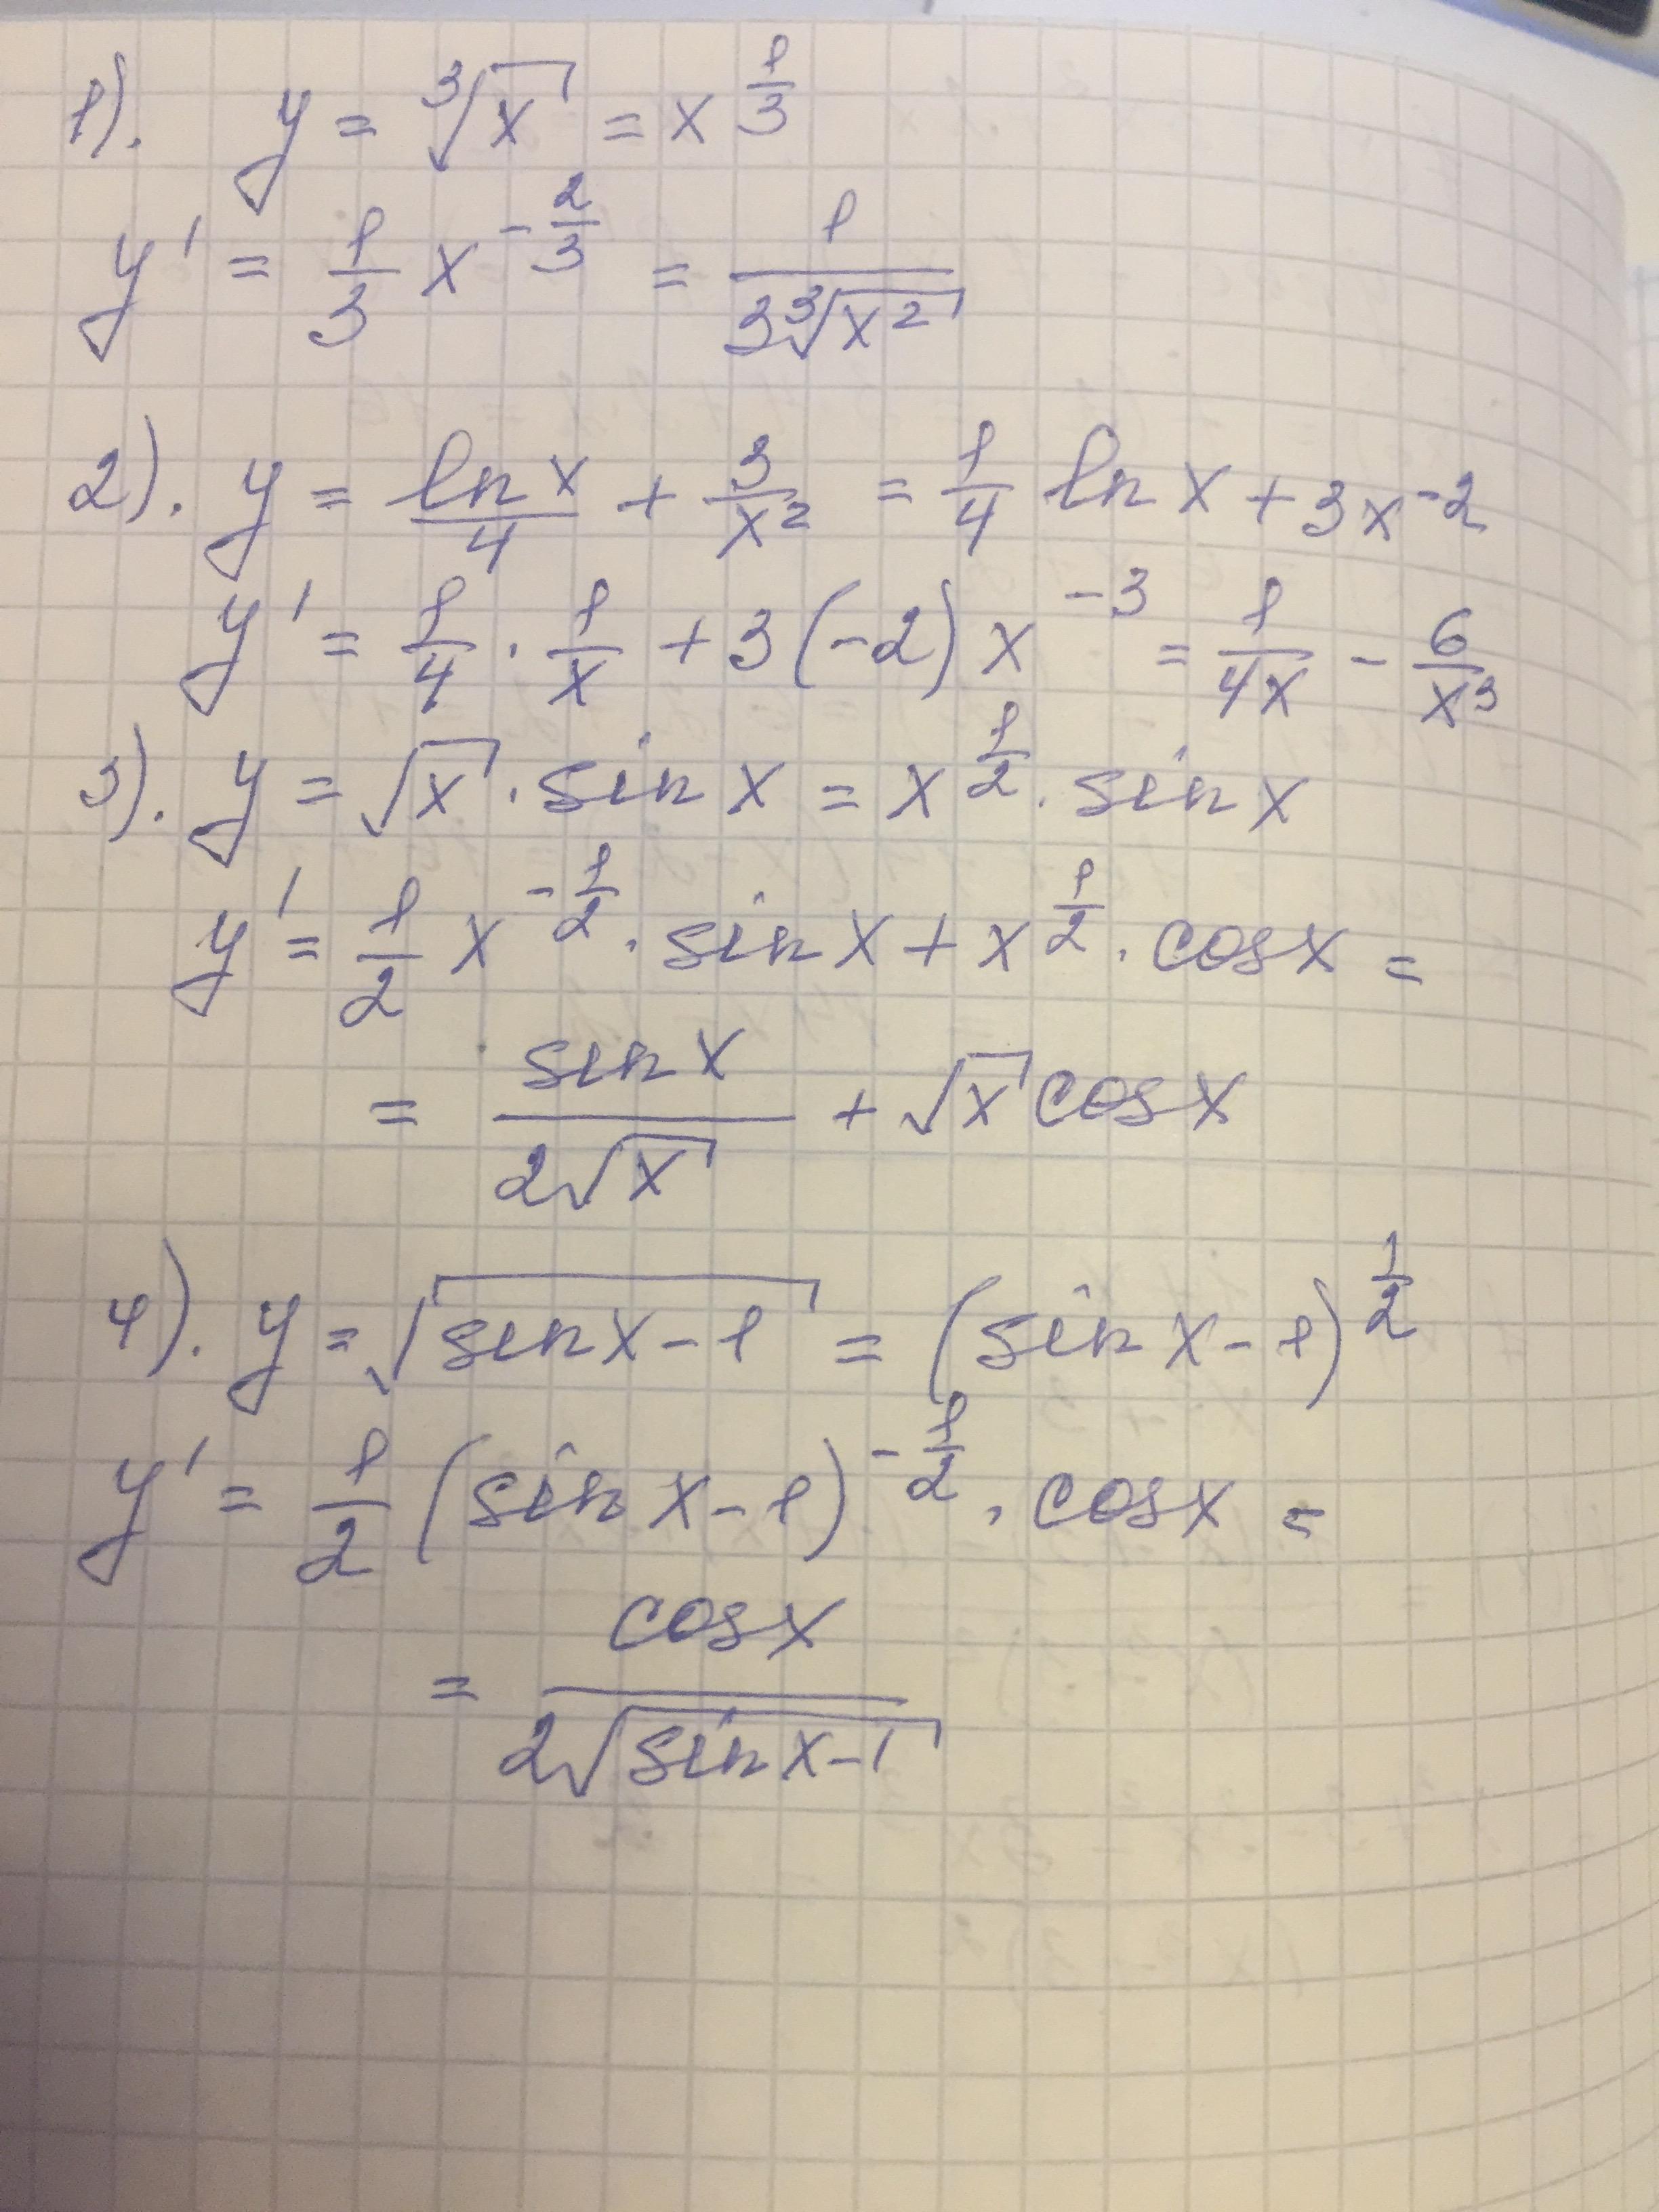 1). y = ∛x = x^(1/3)
y' = 1/3 x^(-2/3) = 1/(3∛(x²))
2). y = ln x/4 + 3/x² = 1/4 ln x + 3x^(-2)
y' = 1/4 · 1/x + 3(-2)x^(-3) = 1/(4x) - 6/x³
3). y = √x · sin x = x^(1/2) · sin x
y' = 1/2 x^(-1/2) · sin x + x^(1/2) · cos x =
= sin x/(2√x) + √x cos x
4). y = √(sin x - 1) = (sin x - 1)^(1/2)
y' = 1/2 (sin x - 1)^(-1/2) · cos x =
= cos x/(2√(sin x - 1))